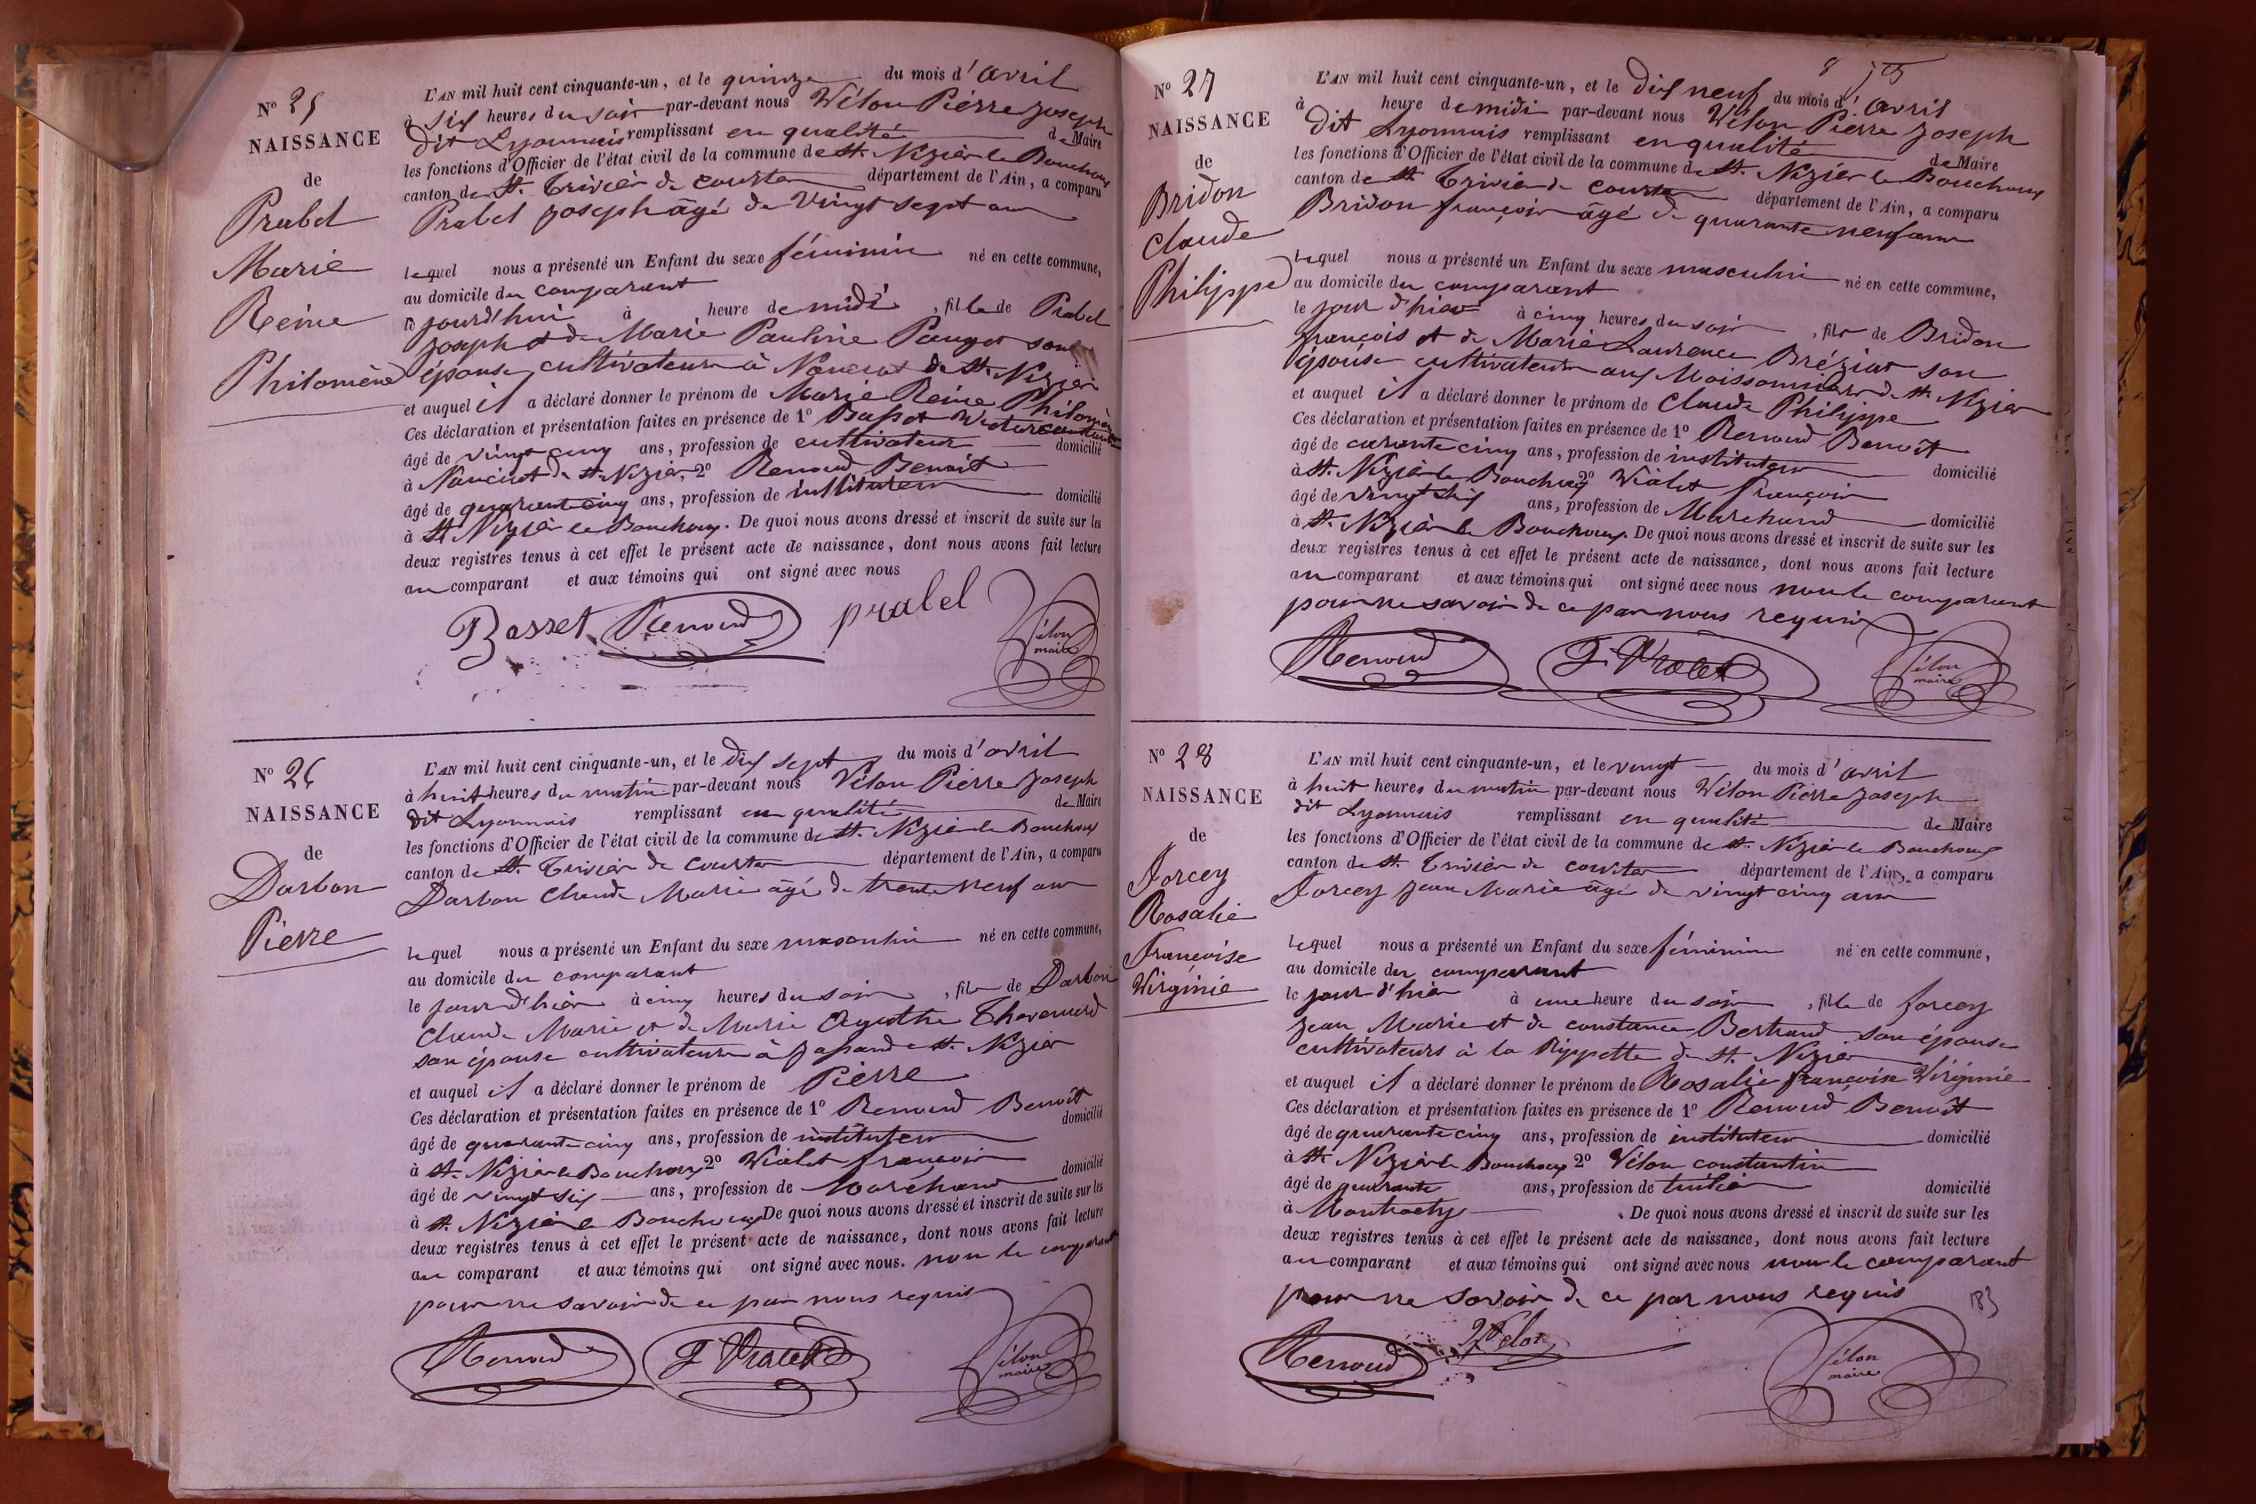 N° 25
NAISSANCE
de
Prabel
Marie
Reine
Philomène
L'AN mil huit cent cinquante-un, et le quinze du mois d'avril
à six heures du soir par-devant nous Vélon Pierre Joseph
dit Lyonnais remplissant en qualité de Maire
les fonctions d'Officier de l'état civil de la commune de St. Nizier le Bouchoux
canton de St. Trivier de Courtes département de l'Ain, a comparu
Prabel Joseph âgé de vingt sept ans
lequel nous a présenté un Enfant du sexe féminin né en cette commune,
au domicile du comparant
jourd'hui à heure de midi, fille de Prabel
Joseph et de Marie Pauline Pauget son
épouse cultivateurs à Nancuet de St. Nizier
et auquel il a déclaré donner le prénom de Marie Reine Philomène
Ces déclaration et présentation faites en présence de 1° Basset
âgé de vingt cinq ans, profession de cultivateur domicilié
à Nancuet de St. Nizier, 2° Renoud Benoît
âgé de quarante cinq ans, profession de instituteur domicilié
à St. Nizier le Bouchoux. De quoi nous avons dressé et inscrit de suite sur les
deux registres tenus à cet effet le présent acte de naissance, dont nous avons fait lecture
au comparant et aux témoins qui ont signé avec nous
Basset Renoud prabel Vélon
maire
N° 26
NAISSANCE
de
Darbon
Pierre
L'AN mil huit cent cinquante-un, et le dix sept du mois d'avril
à huit heures du matin par-devant nous Vélon Pierre Joseph
dit Lyonnais remplissant en qualité de Maire
les fonctions d'Officier de l'état civil de la commune de St. Nizier le Bouchoux
canton de St. Trivier de Courtes département de l'Ain, a comparu
Darbon Claude Marie âgé de trente neuf ans
lequel nous a présenté un Enfant du sexe masculin né en cette commune,
au domicile du comparant
le jour d'hier à cinq heures du soir, fils de Darbon
Claude Marie et de Marie Agathe Thevenard
son épouse cultivateurs à de St. Nizier
et auquel il a déclaré donner le prénom de Pierre
Ces déclaration et présentation faites en présence de 1° Renoud Benoît
âgé de quarante cinq ans, profession de instituteur domicilié
à St. Nizier le Bouchoux 2° Violet françois
âgé de vingt six ans, profession de Maréchand domicilié
à St. Nizier le Bouchoux De quoi nous avons dressé et inscrit de suite sur les
deux registres tenus à cet effet le présent acte de naissance, dont nous avons fait lecture
au comparant et aux témoins qui ont signé avec nous. non le comparant
pour ne savoir de ce par nous requis
Renoud f. Violet Vélon
maire
N° 27
NAISSANCE
de
Bridon
Claude
Philippe
8
L'AN mil huit cent cinquante-un, et le dix neuf du mois d'avril
à heure de midi par-devant nous Vélon Pierre Joseph
dit Lyonnais remplissant en qualité de Maire
les fonctions d'Officier de l'état civil de la commune de St. Nizier le Bouchoux
canton de St. Trivier de Courtes département de l'Ain, a comparu
Bridon françois âgé de quarante neuf ans
lequel nous a présenté un Enfant du sexe masculin né en cette commune,
au domicile du comparant
le jour d'hier à cinq heures du soir, fils de Bridon
françois et de Marie Laurence Bréziat son
épouse cultivateurs aux Moissonniers de St. Nizier
et auquel il a déclaré donner le prénom de Claude Philippe
Ces déclaration et présentation faites en présence de 1° Renoud Benoît
âgé de carante cinq ans, profession de instituteur domicilié
à St. Nizier le Bouchoux 2° Violet françois
âgé de vingt six ans, profession de Marchand domicilié
à St. Nizier le Bouchoux. De quoi nous avons dressé et inscrit de suite sur les
deux registres tenus à cet effet le présent acte de naissance, dont nous avons fait lecture
au comparant et aux témoins qui ont signé avec nous non le comparant
pour ne savoir de ce par nous requis
Renoud f. Violet Vélon
maire
N° 28
NAISSANCE
de
Forcey
Rosalie
Françoise
Virginie
L'AN mil huit cent cinquante-un, et le vingt du mois d'avril
à huit heures du matin par-devant nous Vélon Pierre Joseph
dit Lyonnais remplissant en qualité de Maire
les fonctions d'Officier de l'état civil de la commune de St. Nizier le Bouchoux
canton de St. Trivier de Courtes département de l'Ain, a comparu
Forcey Jean Marie âgé de vingt cinq ans
lequel nous a présenté un Enfant du sexe féminin né en cette commune,
au domicile du comparant
le jour d'hier à une heure du soir, fille de forcey
Jean Marie et de constance Bertrand son épouse
cultivateurs à la Rippette de St. Nizier
et auquel il a déclaré donner le prénom de Rosalie françoise Virginie
Ces déclaration et présentation faites en présence de 1° Renoud Benoît
âgé de quarante cinq ans, profession de instituteur domicilié
à St. Nizier le Bouchoux 2° Vélon constantin
âgé de quarante ans, profession de tuilier domicilié
à. De quoi nous avons dressé et inscrit de suite sur les
deux registres tenus à cet effet le présent acte de naissance, dont nous avons fait lecture
au comparant et aux témoins qui ont signé avec nous non le comparant
pour ne savoir de ce par nous requis
183
Renoud Vélon Vélon
maire